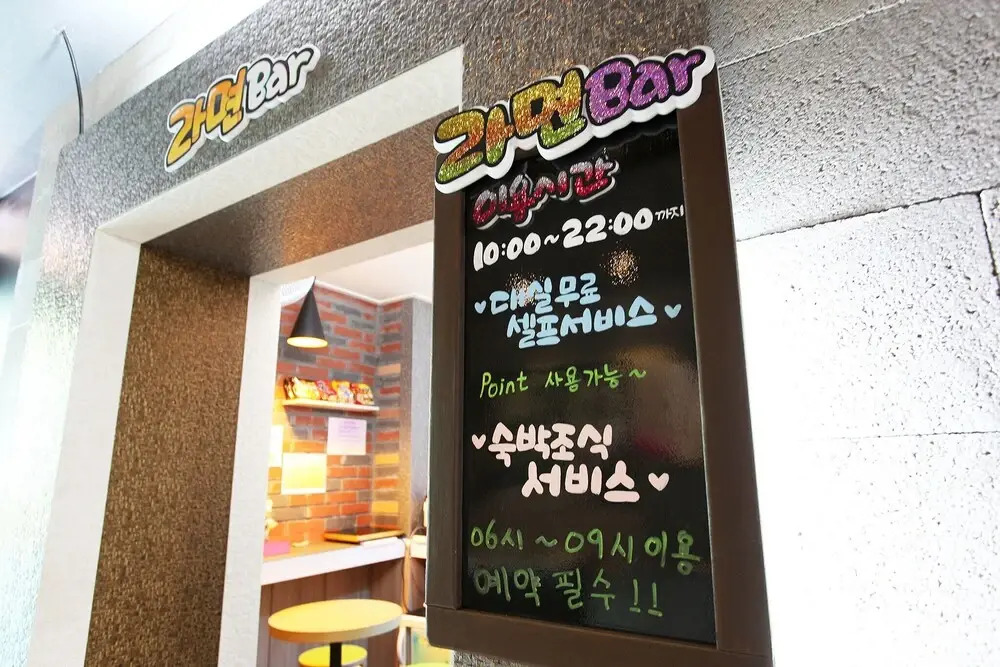 라면Bar
라면Bar
이용시간
10:00~22:00까지
♥대실무료
셀프서비스♥
Point 사용가능~
♥숙박조식
서비스♥
06시~09시이용
예약필수!!